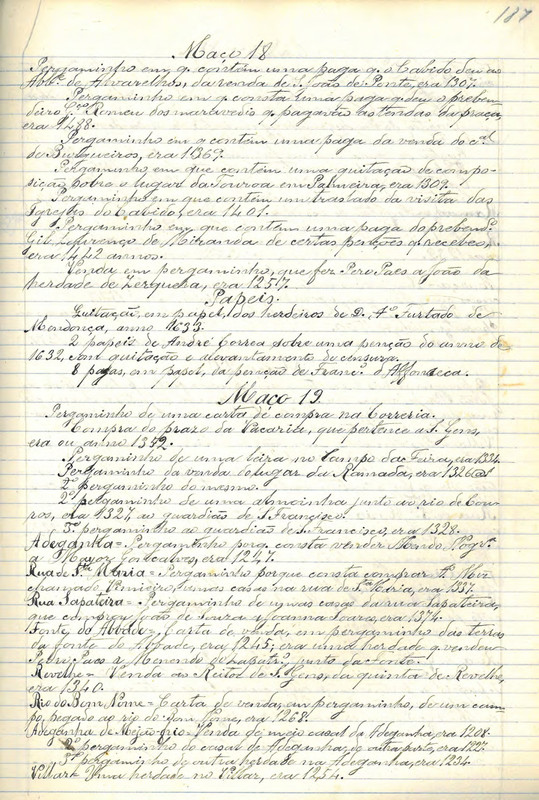 187
Maço 18
Pergaminho em q. contém uma paga q. o Cabido deu ao
Abb.e de Alvarelhos, da venda de S. João de Ponte, era 1307.
Pergaminho em q consta uma paga q deu o preben-
deiro Romeu dos maravedis q. pagavão as tendas da praça,
era 1288.
Pergaminho em q contém uma paga da venda do c.al
de Busqueiros, era 1369.
Pergaminho em que contém uma quitação de compo-
sição sobre o lugar da Touroa em Palmeira, era 1309.
Pergaminho em que contém um traslado da visita das
Igrejas do Cabido, era 1401.
Pergaminho em que contém uma paga do prebend.o
Gil Lourenço de Miranda de certas penções q recebeo,
era 1442 annos.
Venda em pergaminho, que fez Pero Paes a João da
herdade de era 1257.
Papeis.
Quitação, em papel, dos herdeiros de D. A.o Furtado de
Mendonça, anno 1633.
2 papeis de André Correa sobre uma penção do anno de
1632 com quitação e alevantamento de censura.
8 pagas, em papel, da penção de Franc.o d'Affonseca.
Maço 19.
Pergaminho de uma carta de compra na Correria.
Compra do prazo da Vacaria, que pertence a S. Gens,
era ou anno 1352.
Pergaminho de uma leira no Campo da Feira, era 1334.
Pergaminho da venda do lugar da Ramada, era 1326
2.o pergaminho do mesmo.
2.o pergaminho de uma almoinha junto ao rio de Cou-
ros, era 1327 ao guardião de S. Francisco.
3.o pergaminho ao guardião de S. Francisco, era 1328.
Adeganha = Pergaminho por q. consta vender Mendo
a Mayor Gonçalves, era 1247.
Rua de S.ta Maria = Pergaminho porque consta comprar
Pimieiro, umas casas na rua de S.ta Maria, era 1337.
Rua Sapateira = Pergaminho de umas casas da rua Sapateira,
que comprou João de Souza a Joanna Soares, era 1374.
Fonte do Abbade = Carta de venda, em pergaminho, das terras
da fonte do Abbade, era 1245; era uma herdade q. vendeu
Pedro Paes a Menendo junto da fonte.
Revelhe = Venda ao Reitor de S. Gens, da quinta de Revelhe,
era 1340.
Rio do Bom Nome = Carta de venda, em pergaminho, de um cam-
po, pegado ao rio do Bom Nome, era 1268.
Adeganha de Meijão-frio = Venda do meio casal da Adeganha, era 1208.
2.o pergaminho do casal de Adeganha, de outra parte, era 1227.
3.o pergaminho de outra herdade na Adeganha, era 1234.
Villar = Uma herdade no Villar, era 1254.